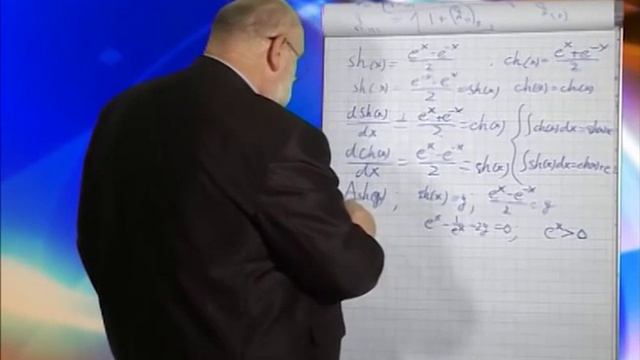 sh(x) = (e^x - e^-x)/2 , ch(x) = (e^x + e^-x)/2
sh(x) = (e^-x - e^x)/2 = sh(x) ch(x) = ch(x)
dsh(x)/dx = (e^x + e^-x)/2 = ch(x) { ∫ch(x)dx =
dch(x)/dx = (e^x - e^-x)/2 = sh(x) ∫sh(x)dx = ch(x)+c
Ash(y) ; sh(x) = y ; (e^x - e^-x)/2 = y
e^x - 1/e^x - 2y = 0 ; e^x > 0